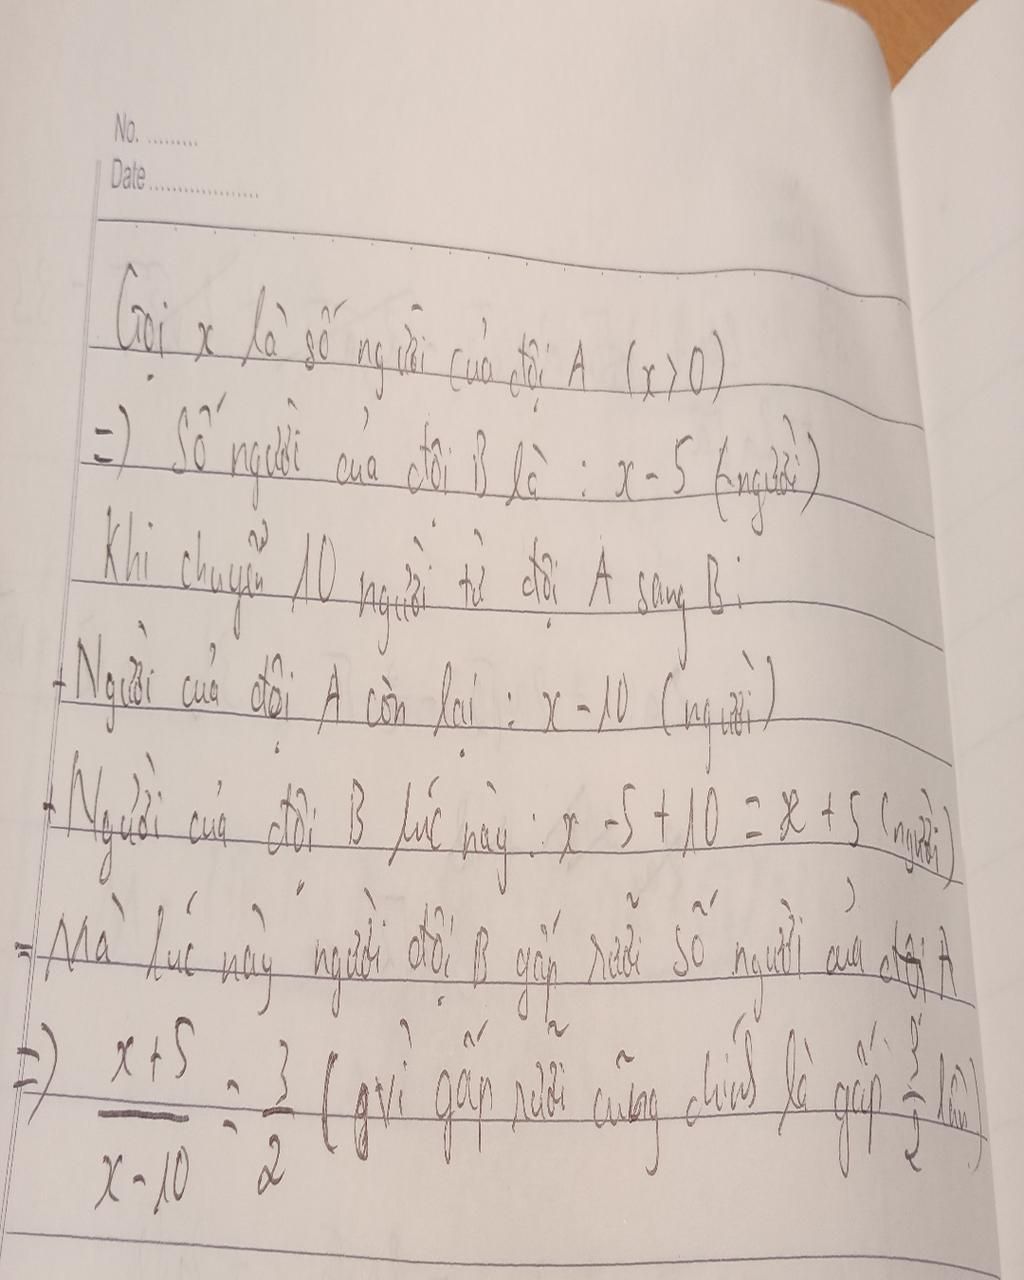 No. .........
Date ...................
Gọi x là số người của đội A (x > 0)
=) Số người của đội B là : x - 5 (người)
Khi chuyển 10 người từ đội A sang B :
+ Người của đội A còn lại : x - 10 (người)
+ Người của đội B lúc này : x - 5 + 10 = x + 5 (người)
- Mà lúc này người đội B gấp rưỡi số người của đội A
=) x + 5 / x - 10 = 3/2 ( vì gấp rưỡi cũng chính là gấp 3/2 lần)